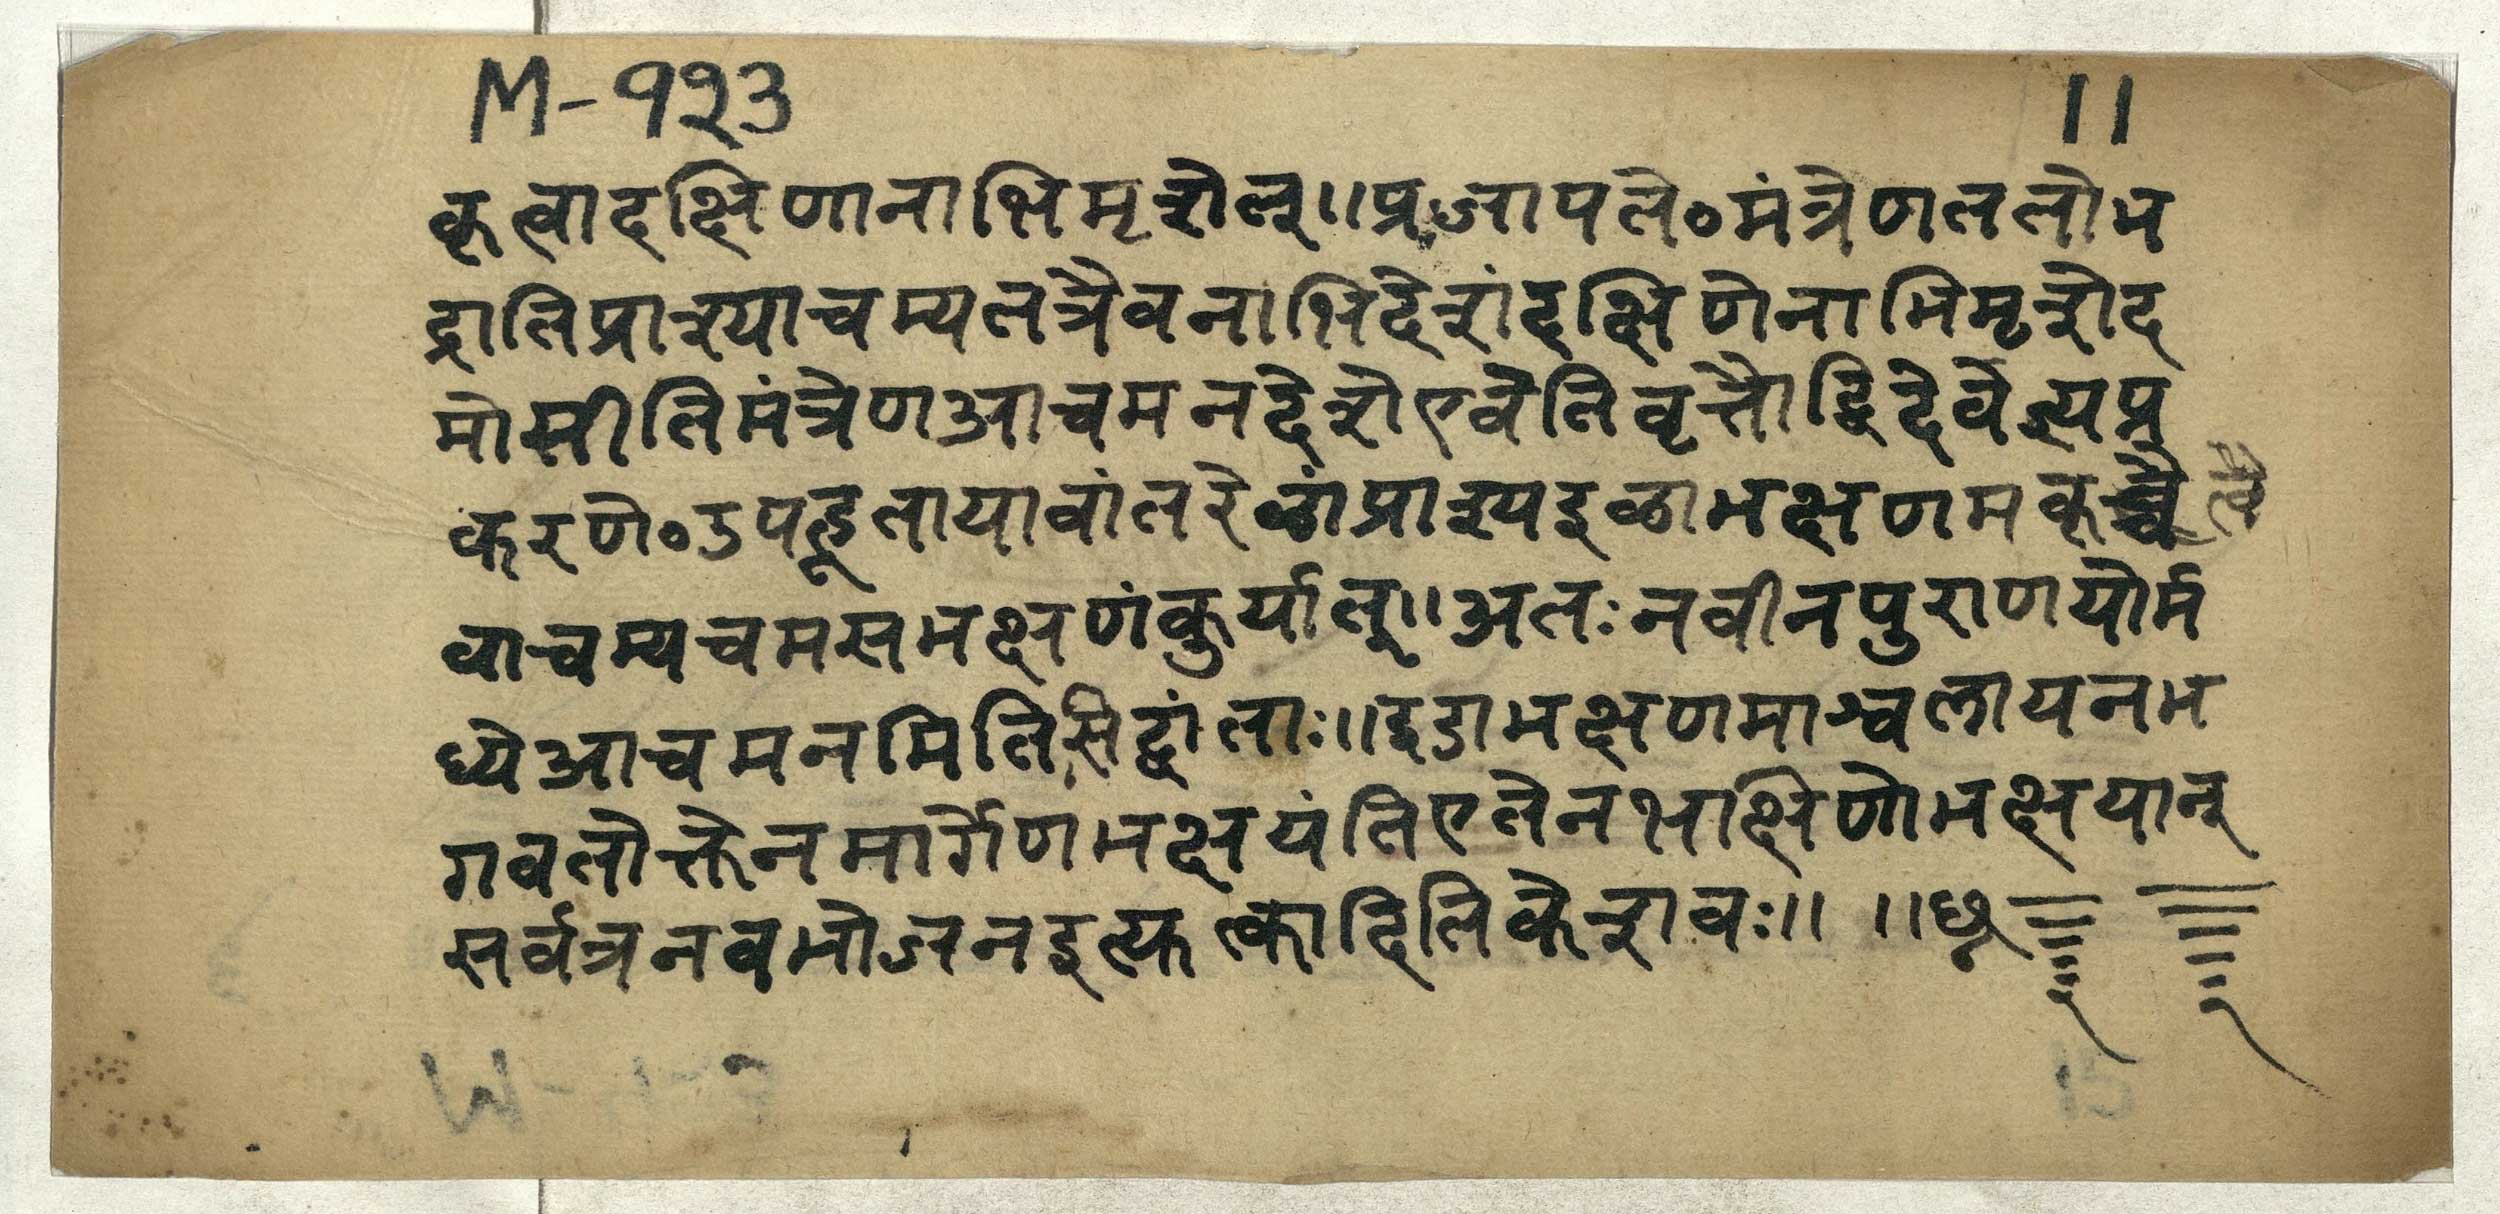 M-१२३ ११
कृत्वादक्षिणानाभिमृशेत्॥प्रजापते०मंत्रेणततोभ
द्रातिप्राश्याचम्यतत्रैवनाभिदेशंदक्षिणेनाभिमृशेद
मोसीतिमंत्रेणआचमनदेशेएवेतिवृत्तौद्विदेवेत्यप्र
करणे०ऽपहूतायावांतरेळांप्राश्यइळाभक्षणमकृत्वै
वाचम्यचमसभक्षणंकुर्यात्॥अतःनवीनपुराणयोर्म
ध्येआचमनमितिसिद्धांताः॥इडाभक्षणमाश्वलायनभ
गवतोक्तेनमार्गेणभक्षयंतिएतेनभक्षिणोभक्षयान्
सर्वत्रनवभोजनइत्युक्तत्वादितिकेशवः॥ ॥छ॥